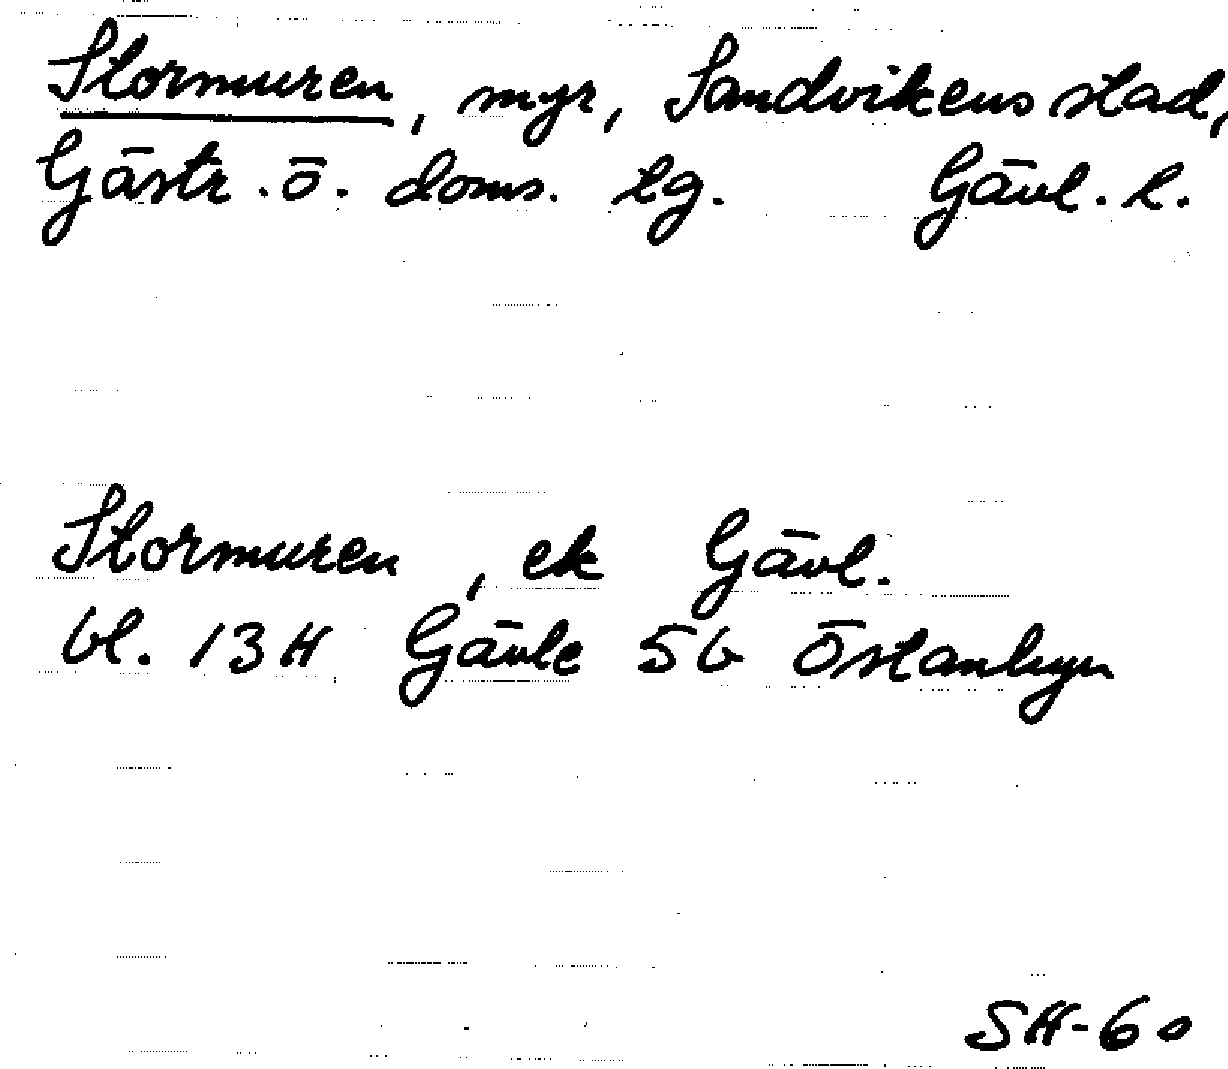 Stormuren, myr, Sandvikens stad,
Gästr. ö. doms. tg. Gävl. l.
Stormuren, ek Gävl.
bl. 13H Gävle 5b Östanbyn
SH-60